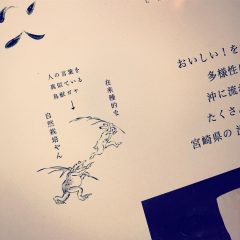 人の言葉を
真似ている
鳥獣ガヤ
在来種的な
自然栽培やん
おいしい！を
多様性
沖に流
たくさ
宮崎県の